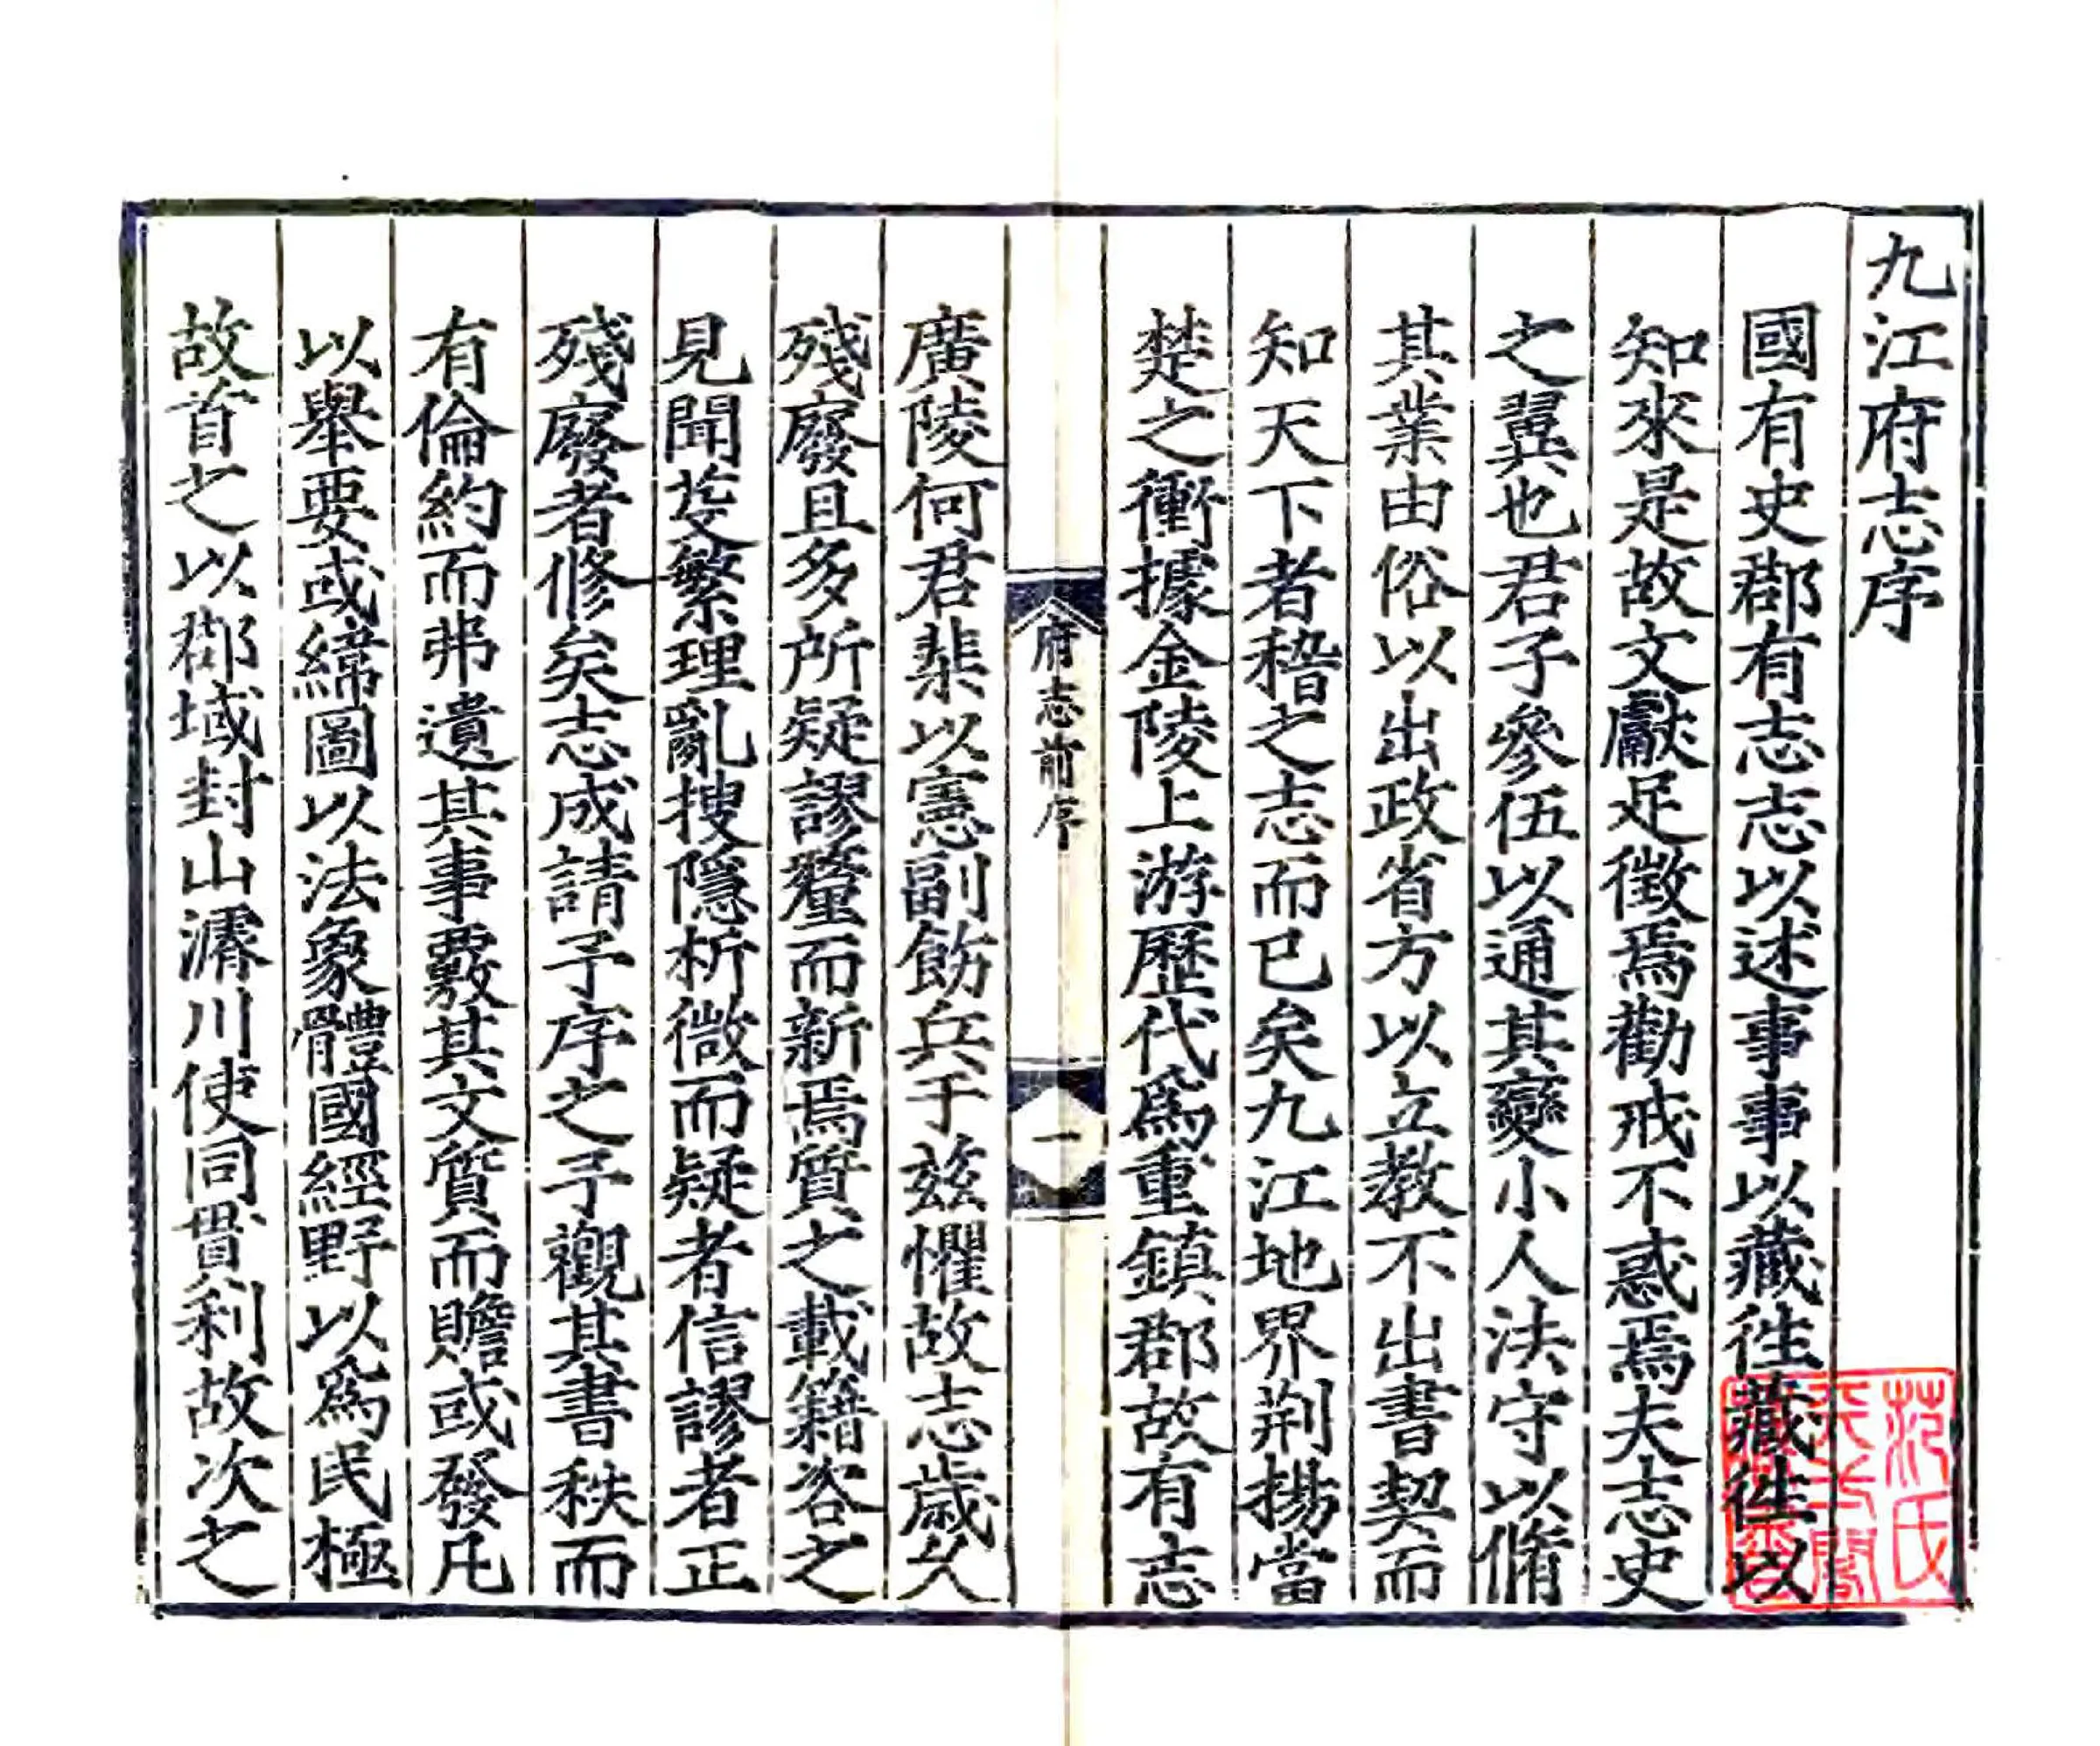 九江府志序
國有史郡有志志以述事事以藏徃藏徃以
知來是故文獻足徵焉勸戒不惑焉夫志史
之翼也君子參伍以通其變小人法守以脩
其業由俗以出政省方以立教不出書契而
知天下者稽之志而已矣九江地界荆揚當
楚之衝據金陵上游歷代爲重鎮郡故有志
府志前序
一
廣陵何君棐以憲副飭兵于兹懼故志歲久
殘廢且多所疑謬釐而新焉質之載籍咨之
見聞芟繁理亂搜隱析微而疑者信謬者正
殘廢者修矣志成請予序之予觀其書秩而
有倫約而弗遺其事覈其文質而贍或發凡
以舉要或緯圖以法象體國經野以爲民極
故首之以郡域封山濬川使同貫利故次之
范氏
天一閣
藏書